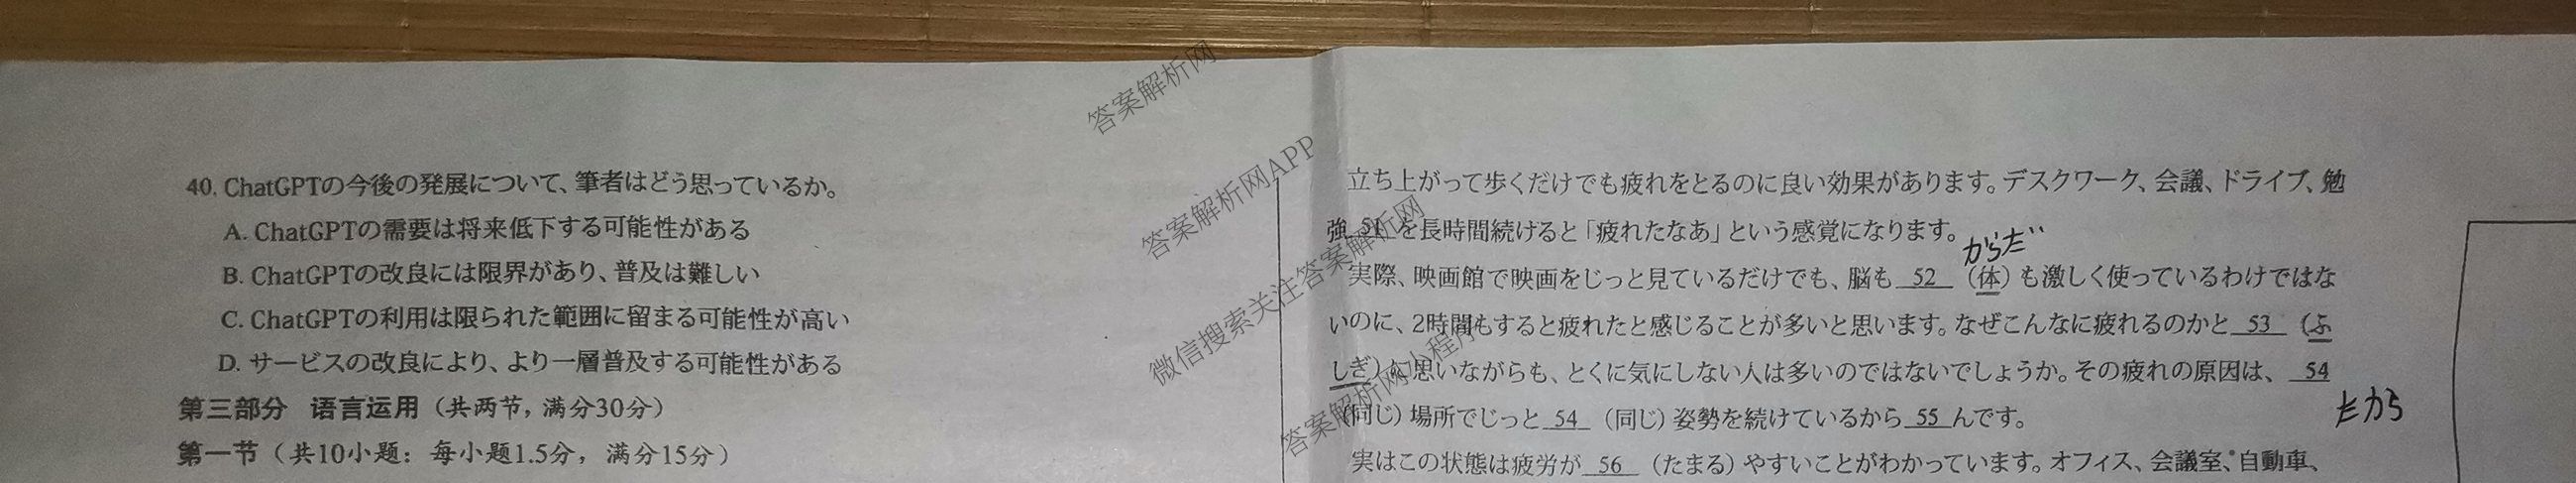 40. ChatGPTの今後の発展について、筆者はどう思っているか。
A. ChatGPTの需要は将来低下する可能性がある
B. ChatGPTの改良には限界があり、普及は難しい
C. ChatGPTの利用は限られた範囲に留まる可能性が高い
D. サービスの改良により、より一層普及する可能性がある
第三部分 语言运用（共两节，满分30分）
第一节（共10小题：每小题1.5分，满分15分）
立ち上がって歩くだけでも疲れをとるのに良い効果があります。デスクワーク、会議、ドライブ、勉
強 51 を長時間続けると「疲れたなあ」という感覚になります。
からだ
実際、映画館で映画をじっと見ているだけでも、脳も 52 （体）も激しく使っているわけではな
いのに、2時間もすると疲れたと感じることが多いと思います。なぜこんなに疲れるのかと 53 （ふ
しぎ）に思いながらも、とくに気にしない人は多いのではないでしょうか。その疲れの原因は、 54
（同じ）場所でじっと 54 （同じ）姿勢を続けているから 55 んです。
だから
実はこの状態は疲労が 56 （たまる）やすいことがわかっています。オフィス、会議室、自動車、
答案解析网
答案解析网APP
微信搜索关注答案解析网
答案解析网小程序